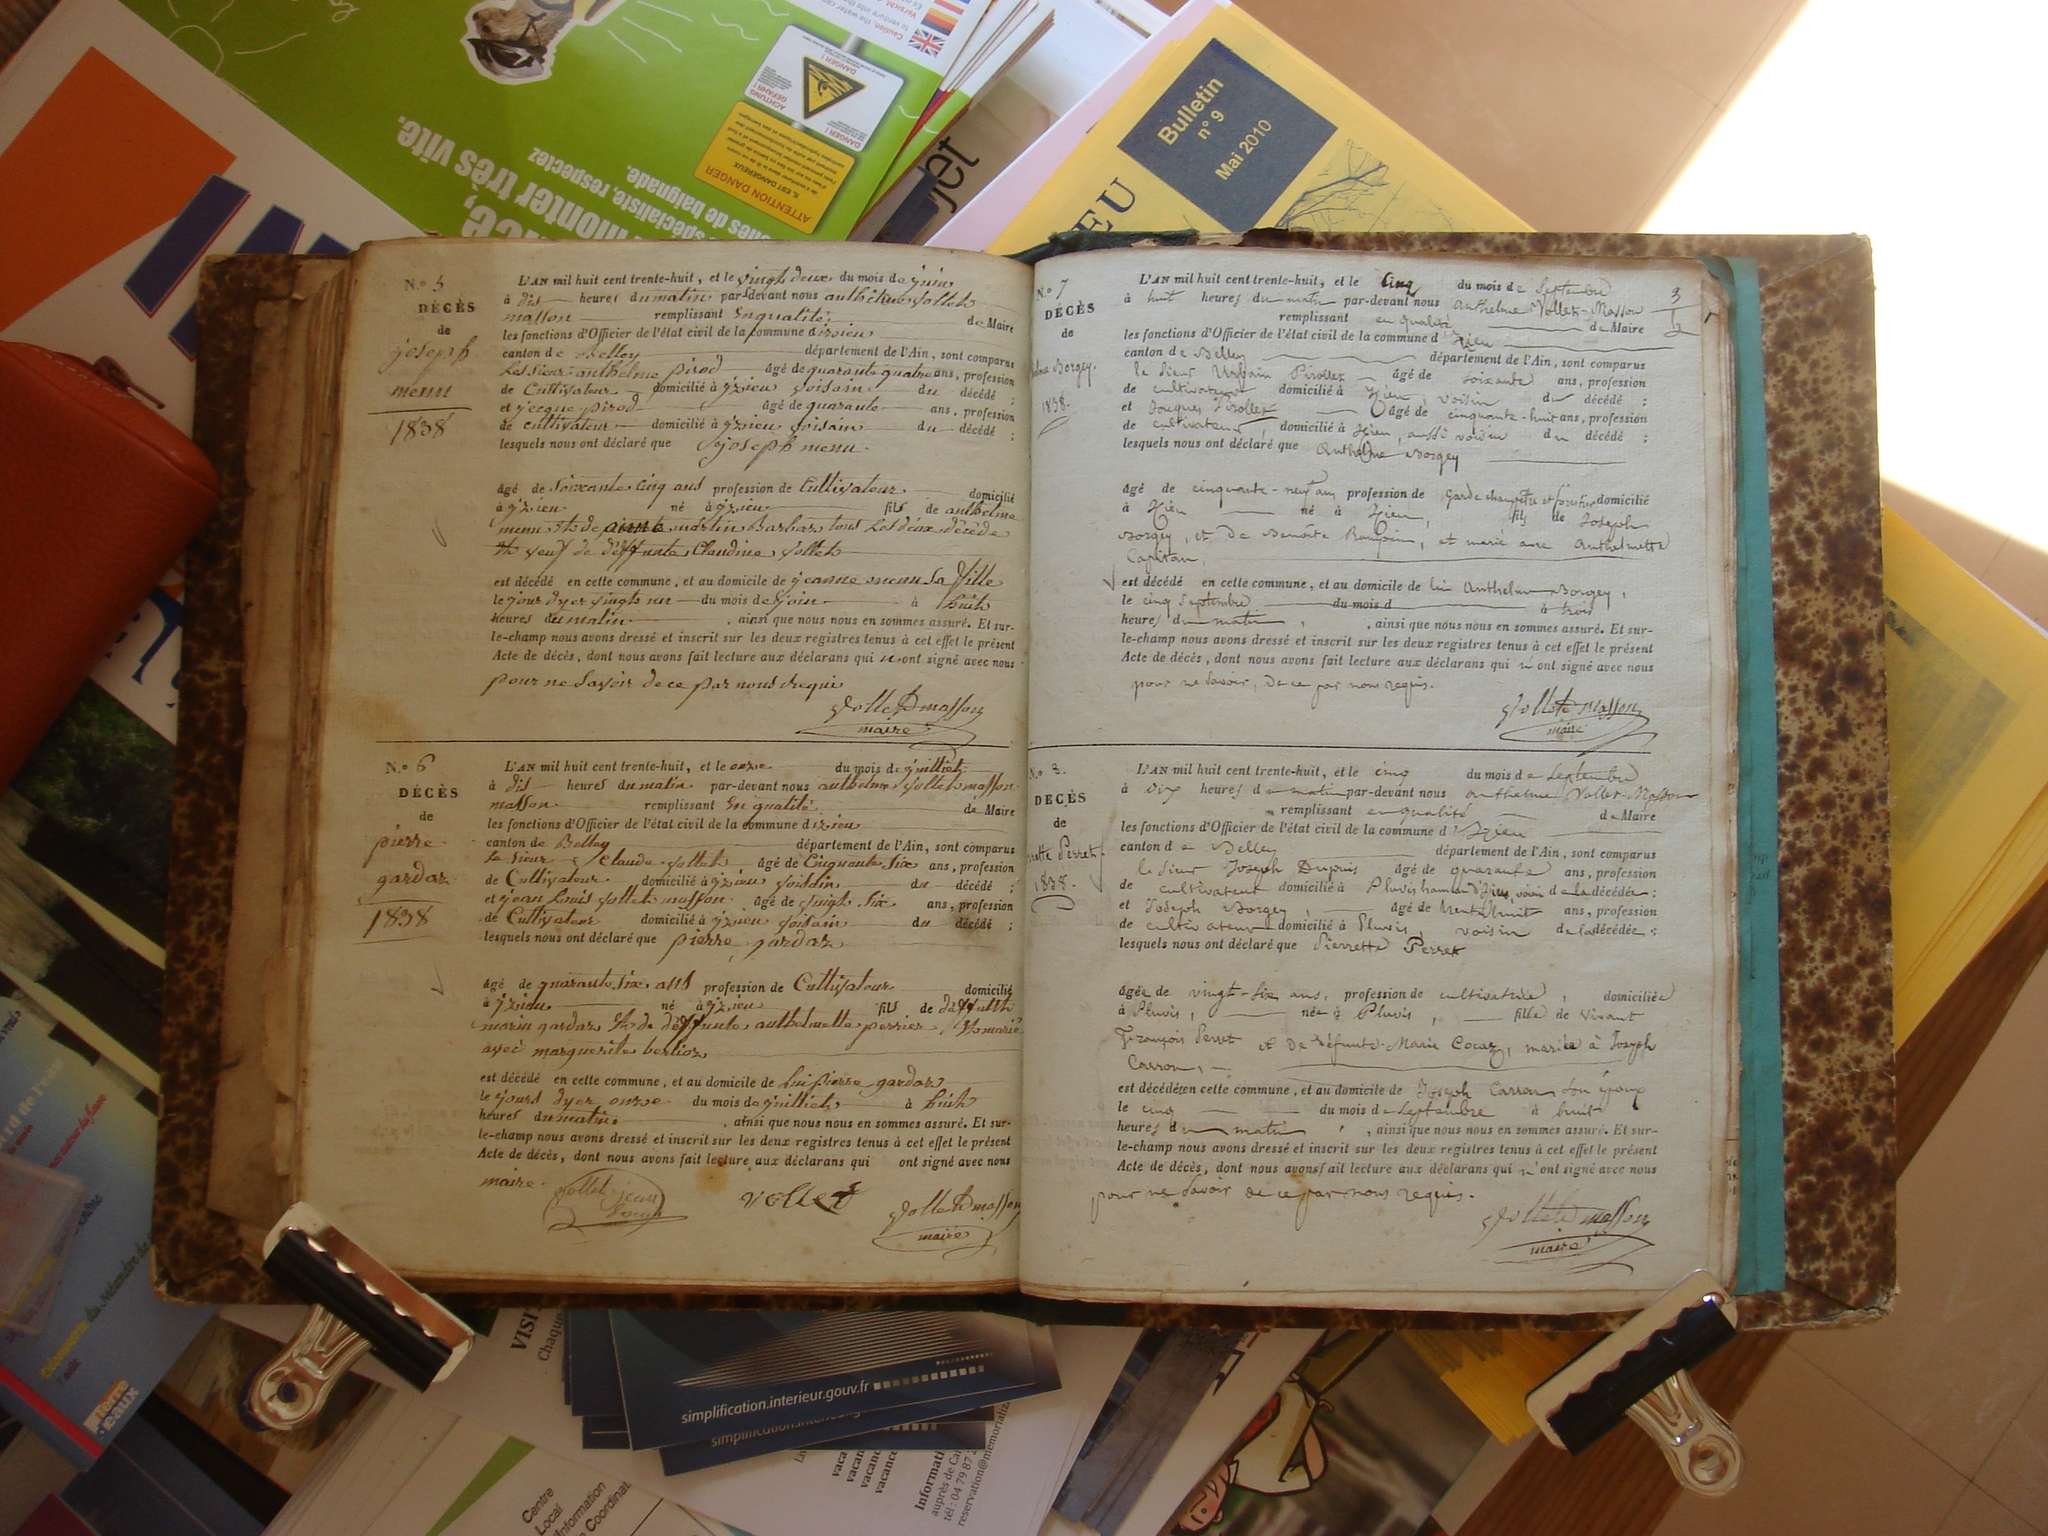 Bulletin
n° 9
Mai 2010
EU
jet
ATTENTION DANGER
IL EST DANGEREUX
ACHTUNG
GEFAHR !
DANGER !
monter très vite.
spécialiste, respectez
de baignade.
N.° 5
DÉCÈS
de
joseph
menu
1838
L'AN mil huit cent trente-huit, et le vingt deux du mois de juin
à dix heures du matin par-devant nous anthelme vollet
masson remplissant En qualité de Maire
les fonctions d'Officier de l'état civil de la commune d'izieu
canton de Belley département de l'Ain, sont comparus
Les sieur anthelme pirod âgé de quarante quatre ans, profession
de Cultivateur domicilié à yzieu voisain du décédé ;
et jacque pirod âgé de quarante ans, profession
de cultivateur domicilié à yzieu voisain du décédé ;
lesquels nous ont déclaré que joseph menu
âgé de soixante cinq ans profession de Cultivateur domicilié
à yzieu né à yzieu fils de anthelme
menu et de martin Barbar tous Les deux décédé
et veuf de deffunte Claudine vollet
est décédé en cette commune, et au domicile de jeanne menu sa fille
le jour dyer vingt un du mois de join à huit
heures du matin, ainsi que nous nous en sommes assuré. Et sur-
le-champ nous avons dressé et inscrit sur les deux registres tenus à cet effet le présent
Acte de décès, dont nous avons fait lecture aux déclarans qui n'ont signé avec nous
pour ne savoir de ce par nous requi
vollet masson
maire
N.° 6
DÉCÈS
de
pierre
gardaz
1838
L'AN mil huit cent trente-huit, et le onze du mois de juilliet
à dix heures du matin par-devant nous anthelme vollet masson
masson remplissant En qualité de Maire
les fonctions d'Officier de l'état civil de la commune d'izieu
canton de Belley département de l'Ain, sont comparus
le sieur Claude vollet âgé de Cinquante six ans, profession
de Cultivateur domicilié à yzieu voisain du décédé ;
et jean Louis vollet masson âgé de vingt six ans, profession
de Cultivateur domicilié à yzieu voisain du décédé ;
lesquels nous ont déclaré que pierre gardaz
âgé de quarante six ans profession de Cultivateur domicilié
à yzieu né à yzieu fils de deffunt
marin gardaz et de deffunte anthelmette perrier et marié
avec marguerite berlioz
est décédé en cette commune, et au domicile de lui pierre gardaz
le jours dyer onze du mois de juilliet à huit
heures du matin, ainsi que nous nous en sommes assuré. Et sur-
le-champ nous avons dressé et inscrit sur les deux registres tenus à cet effet le présent
Acte de décès, dont nous avons fait lecture aux déclarans qui ont signé avec nous
maire
vollet jean
Louis
vollet
vollet masson
maire
3
N.° 7
DÉCÈS
de
Borgey.
1838.
L'AN mil huit cent trente-huit, et le Cinq du mois de Septembre
à huit heures du matin par-devant nous Anthelme Vollet-Masson
remplissant en qualité de Maire
les fonctions d'Officier de l'état civil de la commune d'Izieu
canton de Belley département de l'Ain, sont comparus
le sieur Urbain Pirollet âgé de soixante ans, profession
de cultivateur domicilié à Izieu, voisin du décédé ;
et Jacques Pirollet âgé de cinquante-huit ans, profession
de cultivateur, domicilié à Izieu, aussi voisin du décédé ;
lesquels nous ont déclaré que Anthelme Borgey
âgé de cinquante-neuf ans profession de Garde champêtre et forestier domicilié
à Izieu né à Izieu, fils de Joseph
Borgey, et de Benoîte, et marié avec Anthelmette
Capitan,
est décédé en cette commune, et au domicile de lui Anthelme Borgey,
le cinq Septembre du mois d à trois
heures du matin, ainsi que nous nous en sommes assuré. Et sur-
le-champ nous avons dressé et inscrit sur les deux registres tenus à cet effet le présent
Acte de décès, dont nous avons fait lecture aux déclarans qui n'ont signé avec nous
pour ne savoir, de ce par nous requis.
vollet masson
maire
N.° 8.
DÉCÈS
de
Perret
1838.
L'AN mil huit cent trente-huit, et le cinq du mois de Septembre
à dix heures du matin par-devant nous anthelme Vollet-Masson
remplissant en qualité de Maire
les fonctions d'Officier de l'état civil de la commune d'Izieu
canton de Belley département de l'Ain, sont comparus
le sieur Joseph Dupuis âgé de quarante ans, profession
de cultivateur domicilié à Pluvis hameau d'Izieu, voisin de la décédée ;
et Joseph Borgey, âgé de trente huit ans, profession
de cultivateur domicilié à Pluvis, voisin de la décédée ;
lesquels nous ont déclaré que Pierrette Perret
âgée de vingt-six ans, profession de cultivatrice, domiciliée
à Pluvis, née à Pluvis, fille de vivant
François Perret et de défunte Marie Cocaz, mariée à Joseph
Carron,
est décédée en cette commune, et au domicile de Joseph Carron son époux
le cinq du mois de Septembre à huit
heures du matin, ainsi que nous nous en sommes assuré. Et sur-
le-champ nous avons dressé et inscrit sur les deux registres tenus à cet effet le présent
Acte de décès, dont nous avons fait lecture aux déclarans qui n'ont signé avec nous
pour ne savoir de ce par nous requis.
vollet masson
maire
simplification.interieur.gouv.fr
simplification.interieur.g
VISI
Chaque
Centre
Local
Information
Coordinat
vaca
vacan
vacance
Informati
auprès de Ca
tél : 04 79 87 2
reservation@memorializ
Terre
eaux